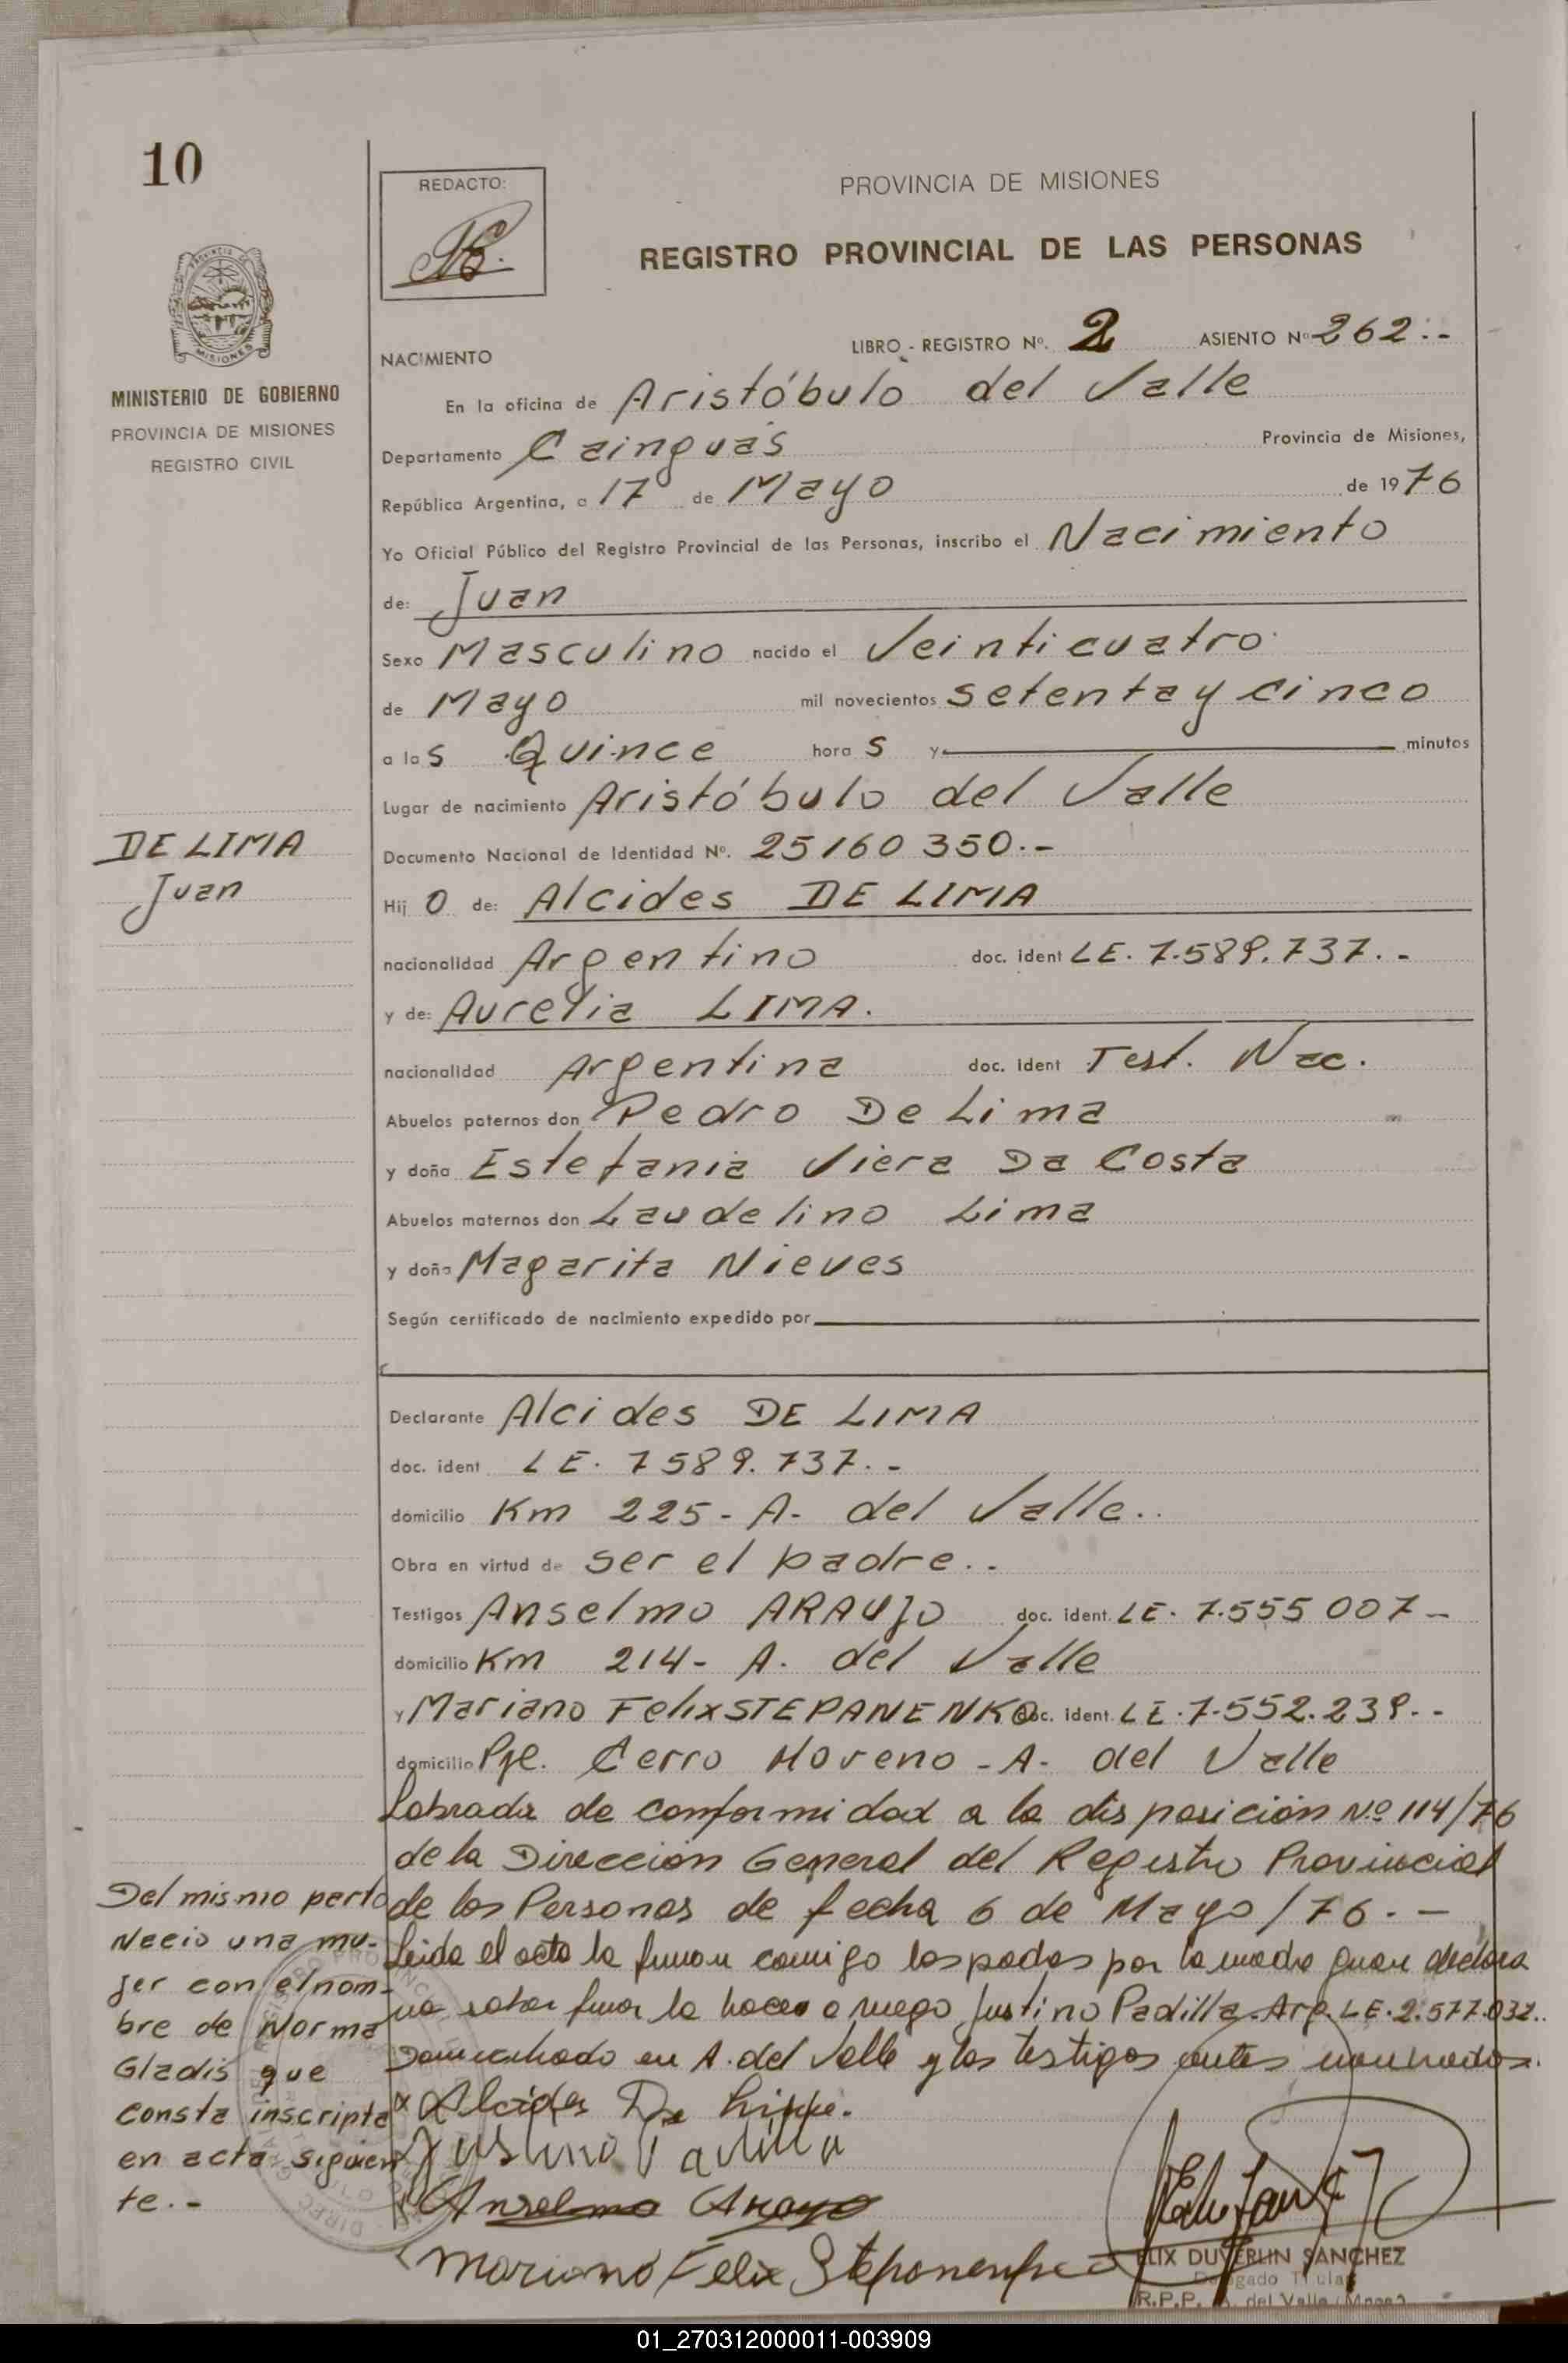 10
REDACTO:
PROVINCIA DE MISIONES
REGISTRO PROVINCIAL DE LAS PERSONAS
MISIONES
MINISTERIO DE GOBIERNO
PROVINCIA DE MISIONES
REGISTRO CIVIL
NACIMIENTO
LIBRO - REGISTRO Nº. 2 ASIENTO Nº 262.-
En la oficina de Aristóbulo del Valle
Departamento Cainguás Provincia de Misiones,
República Argentina, a 17 de Mayo de 1976
Yo Oficial Público del Registro Provincial de las Personas, inscribo el Nacimiento
de: Juan
Sexo Masculino nacido el Veinticuatro
de Mayo mil novecientos setenta y cinco
a las Quince horas y minutos
Lugar de nacimiento Aristóbulo del Valle
DE LIMA
Juan
Documento Nacional de Identidad Nº. 25160350.-
Hijo de: Alcides DE LIMA
nacionalidad Argentino doc. ident LE. 7.589.737.-
y de: Aurelia LIMA.
nacionalidad Argentina doc. ident Test. Nac.
Abuelos paternos don Pedro De Lima
y doña Estefania Viera Da Costa
Abuelos maternos don Laudelino Lima
y doña Magarita Nieves
Según certificado de nacimiento expedido por
Declarante Alcides DE LIMA
doc. ident LE. 7589.737.-
domicilio Km 225-A- del Valle..
Obra en virtud de ser el padre..
Testigos Anselmo ARAUJO doc. ident. LE. 7.555 007-
domicilio Km 214- A. del Valle
y Mariano Felix STEPANENKO doc. ident. LE. 7.552.239.-
domicilio Pje. Cerro Moreno - A- del Valle
Labrada de conformidad a la disposición Nº 114/76
de la Dirección General del Registro Provincial
de las Personas de fecha 6 de Mayo/76.-
Leida el acta la firman comigo los padres por la madre quien declara
no saber firmar lo hace a ruego Justino Padilla-Arg. LE. 2.577.032..
Domiciliado en A. del Valle y los testigos antes nombrados.
Del mismo parto
Nacio una mu-
jer con el nom-
bre de Norma
Gladis que
consta inscripta
en acta siguien
te.-
Alcides De Lima.
Justino Padilla
Anselmo Araujo
Mariano Felix Stepanenko
FELIX DUVERLIN SANCHEZ
Delegado Titular
R.P.P. A. del Valle (Mnes)
01_270312000011-003909